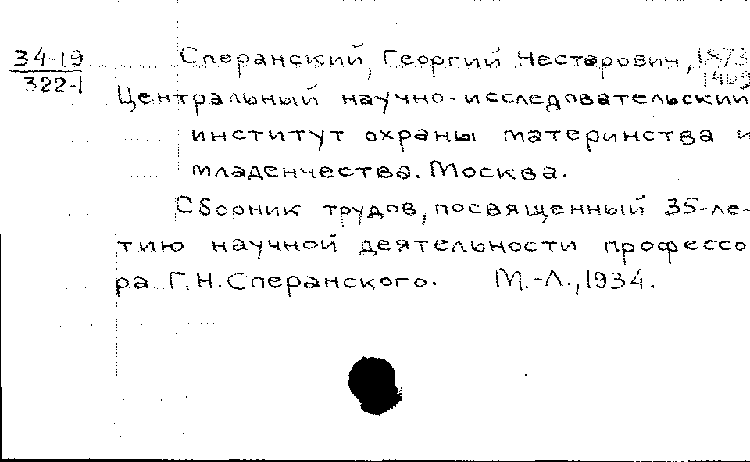 34-19
322-1
Сперанский, Георгий Нестарович, 1873
1969
Центральный научно-исследовательский
институт охраны материнства и
младенчества. Москва.
Сборник трудов, посвященный 35-ле-
тию научной деятельности профессо
ра Г.Н.Сперанского. М.-Л., 1934.